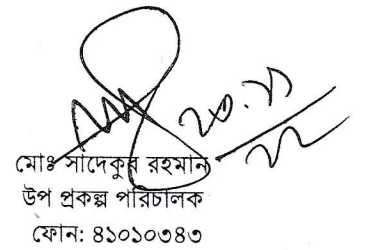 ২০.১১
২২
মোঃ সাদেকুর রহমান
উপ প্রকল্প পরিচালক
ফোন: ৪১০১০৩৪৩